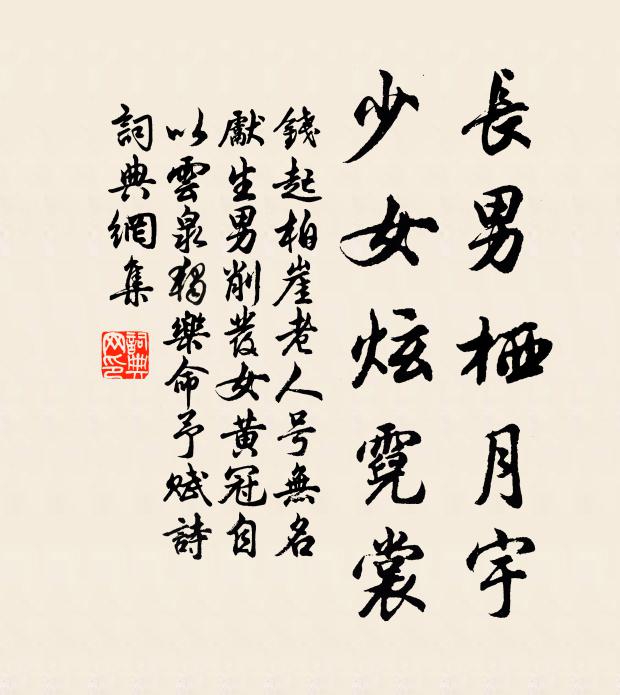 長男栖月宇
少女炫霓裳
錢起柏崖老人号無名
獻生男削發女黄冠自
以雲泉獨樂命予賦詩
詞典網集
詞典
网印